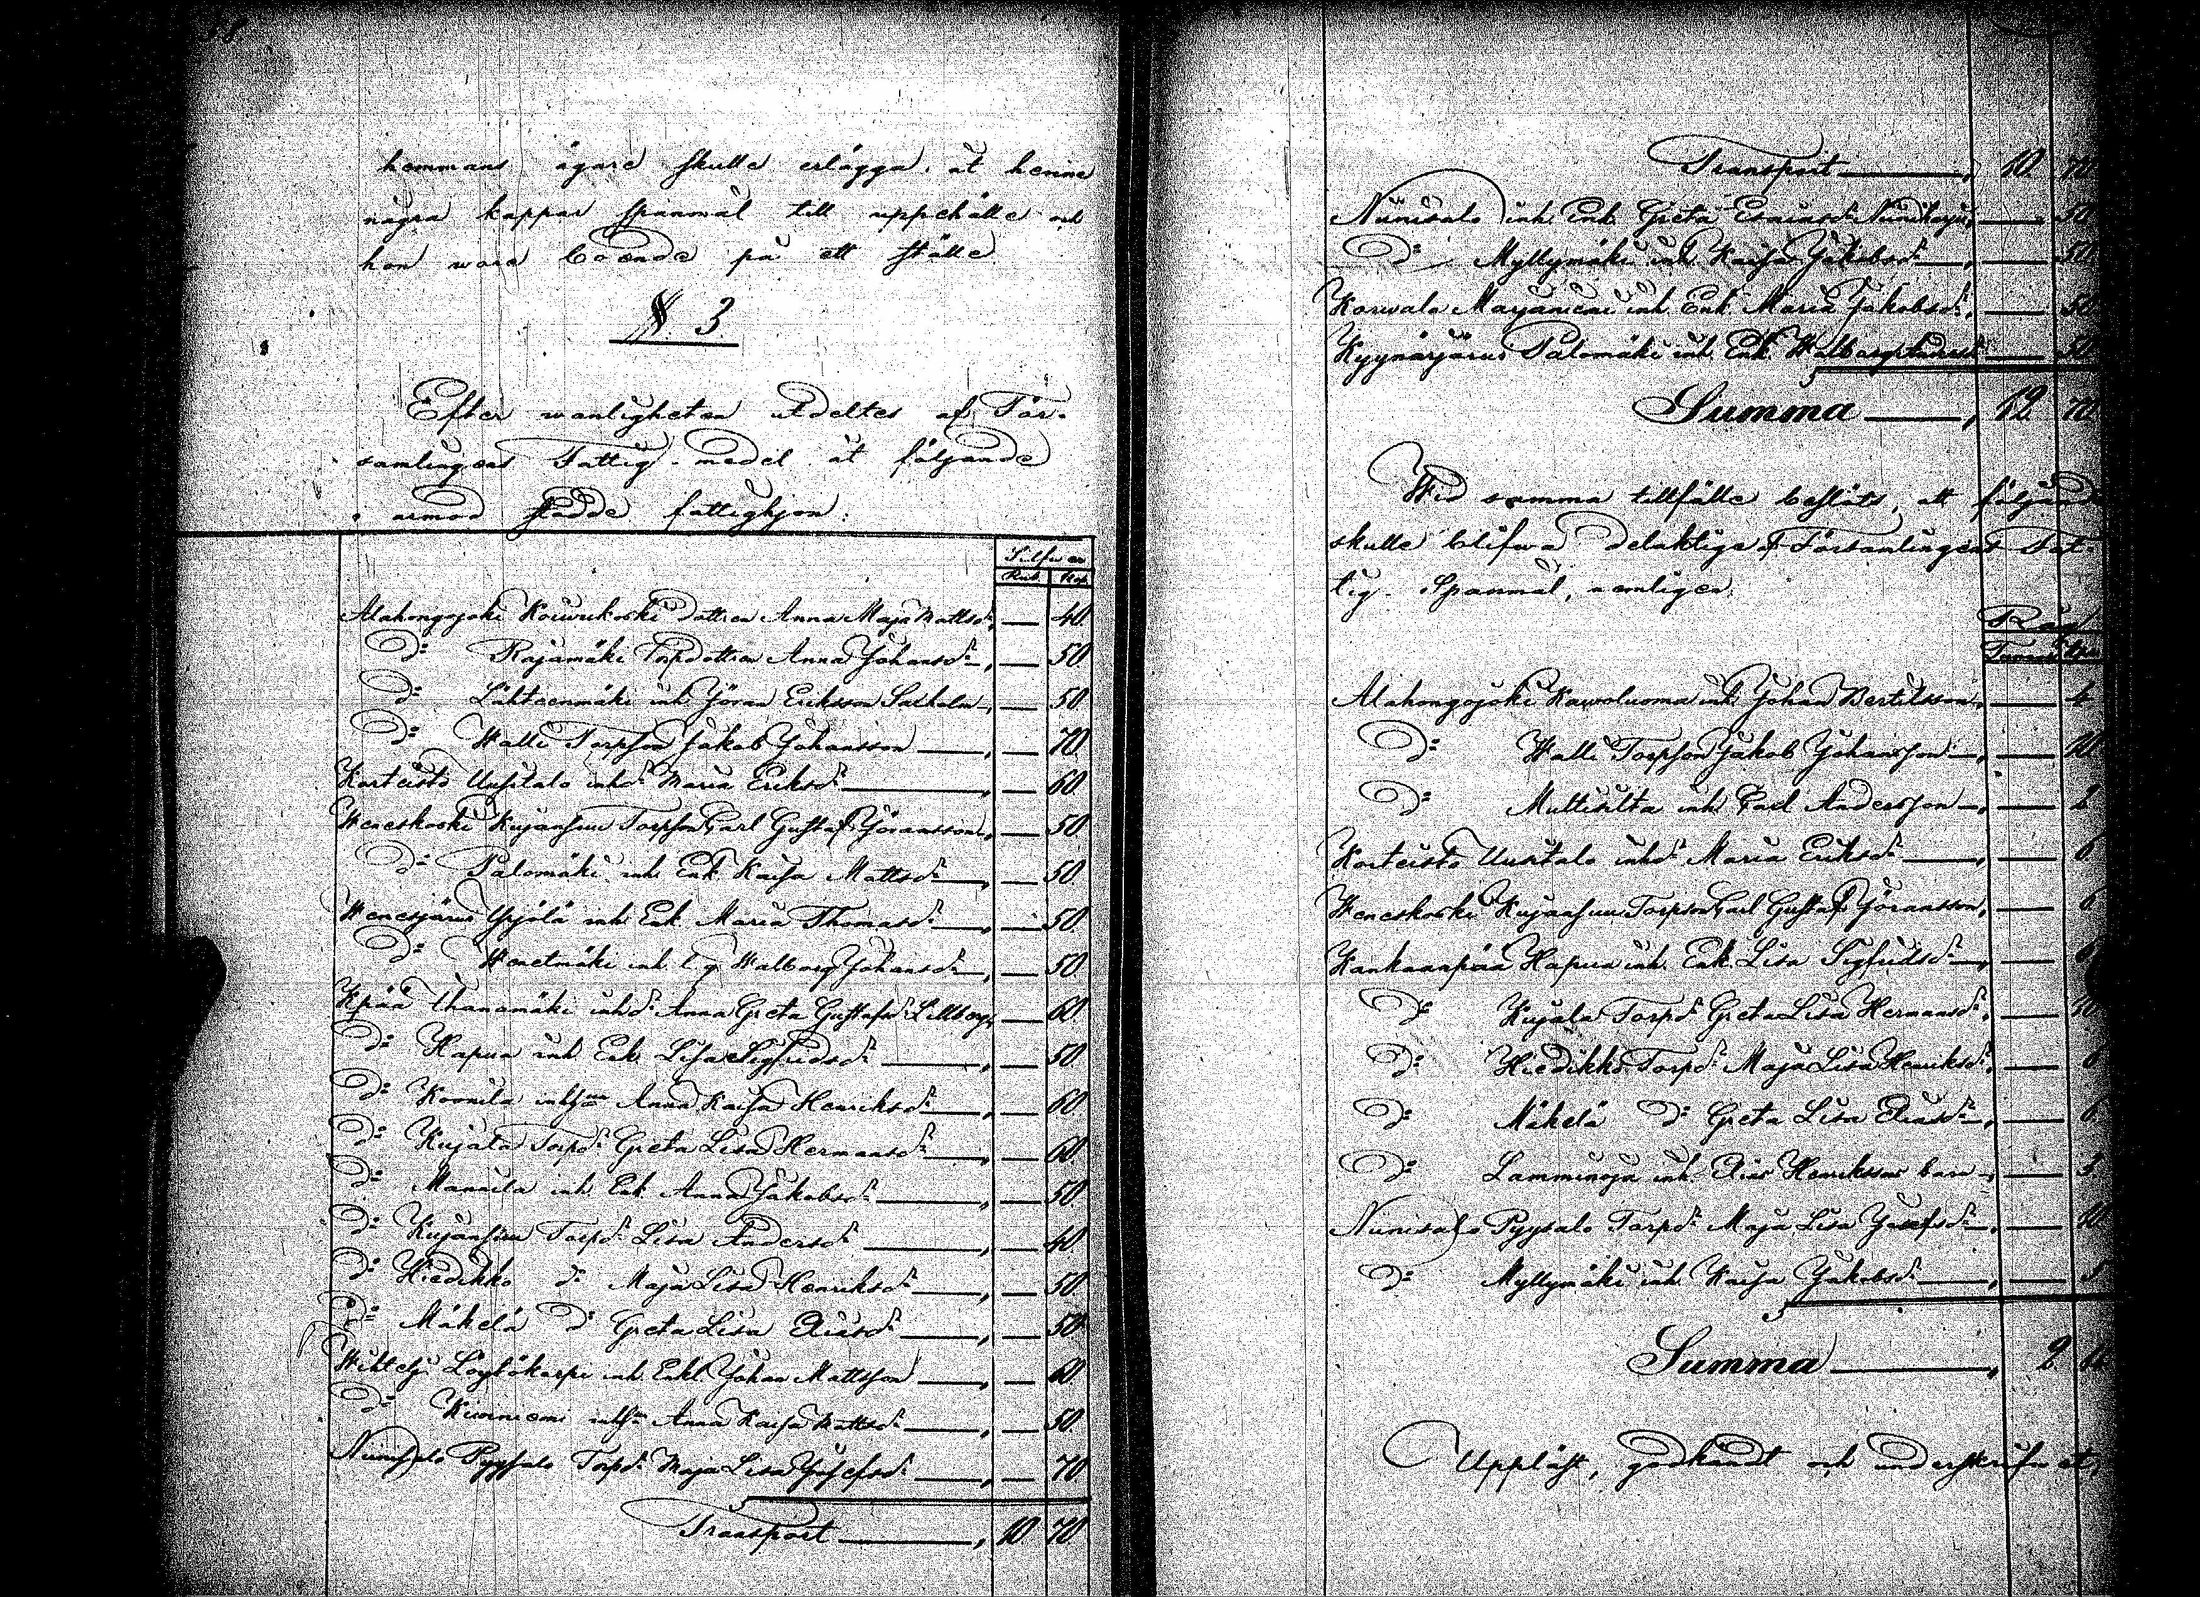 hemmans ägare skulle erlägga, åt henne
några kappar spanmål till uppehälle och
hon vore boende på ett ställe
§ 3.
Efter wanligheten utdeltes af För-
samlingens Fattig-medel åt följande
i armod stadde fattighjon:
Silfver
Rub. Kop.
Alahongojoki Koiwukoski dottren Anna Maja Mattsd:r — 40.
D:o Rajamäki Torpdottren Anna Johansd:r — 50
D:o Lähteenmäki inh. Jöran Eriksson Salholm — 50
D:o Walli Torpson Jakob Johansson — 70
Korteisto Uusitalo inhd:r Maria Eriksd:r — 60
Weneskoski Kujansuu Torpson Carl Gustaf Jöransson — 50
D:o Palomäki inh. Enk. Kaisa Mattsd:r — 50.
Wenesjärvi Yrjölä inh. Enk. Maria Thomasd:r — 50
D:o Wenetmäki inh. Walborg Johansd:r — 50
Kpää Uhanamäki inhd:r Anna Greta Gustafsd:r Lillberg — 60.
D:o Hapua inh. Enk. Lisa Sigfridsd:r — 50.
D:o Koonila Anna Kaisa Henriksd:r — 60
D:o Kujala Torpd:r Greta Lisa Hermansd:r — 60.
D:o Mannila inh. Enk. Anna Jakobsd:r — 50.
D:o Kujansuu Torpd:r Lisa Andersd:r — 40
D:o Hiedikko d:o Maja Lisa Henriksd:r — 50
D:o Mäkelä D:o Greta Lisa Eliasd:r — 50
Wihtelj: Löytökorpi inh. Enkl. Johan Mattsson — 60
D:o Kiviniemi Anna Kaisa Mattsd:r — 50.
Niinisalo Pyysalo Torpd:r Maja Lisa Josefsd:r — 70
Transport — 10 70.
Transport — 10 70
Niinisalo inh. Enk. Greta Esaiasd:r Niiniharju — 50
D:o Myllymäki inh. Kaisa Jakobsd:r — 50
Korwala Marjaniemi inh. Enk. Maria Jakobsd:r — 50
Kyynärjärvi Palomäki inh. Enk. Walborg — 50
Summa — 12 70
Wid samma tillfälle beslöts, att följande
skulle blifwa delaktige af Församlingens Fat-
tig-Spanmål, nemligen:
Råg
Alahongojoki Karvoluoma inh. Johan Bertilsson — 4
D:o Walli Torpson Jakob Johansson — 10
D:o Multisilta inh. Carl Andersson — 2
Korteisto Uusitalo inhd:r Maria Eriksd:r — 6
Weneskoski Kujansuu Torpson Carl Gustaf Jöransson — 6
Kankaanpää Hapua inh. Enk. Lisa Sigfridsd:r — 6
D:o Kujala Torpd:r Greta Lisa Hermansd:r — 10
D:o Hiedikko Torpd:r Maja Lisa Henriksd:r — 6
D:o Mäkelä D:o Greta Lisa Eliasd:r — 6
D:o Lamminoja inh. Elias Henrikssons barn — 3
Niinisalo Pyysalo Torpd:r Maja Lisa Josefsd:r — 10
D:o Myllymäki inh. Kaisa Jakobsd:r —
Summa — 2
Uppläst, godkändt och underskrifwet,